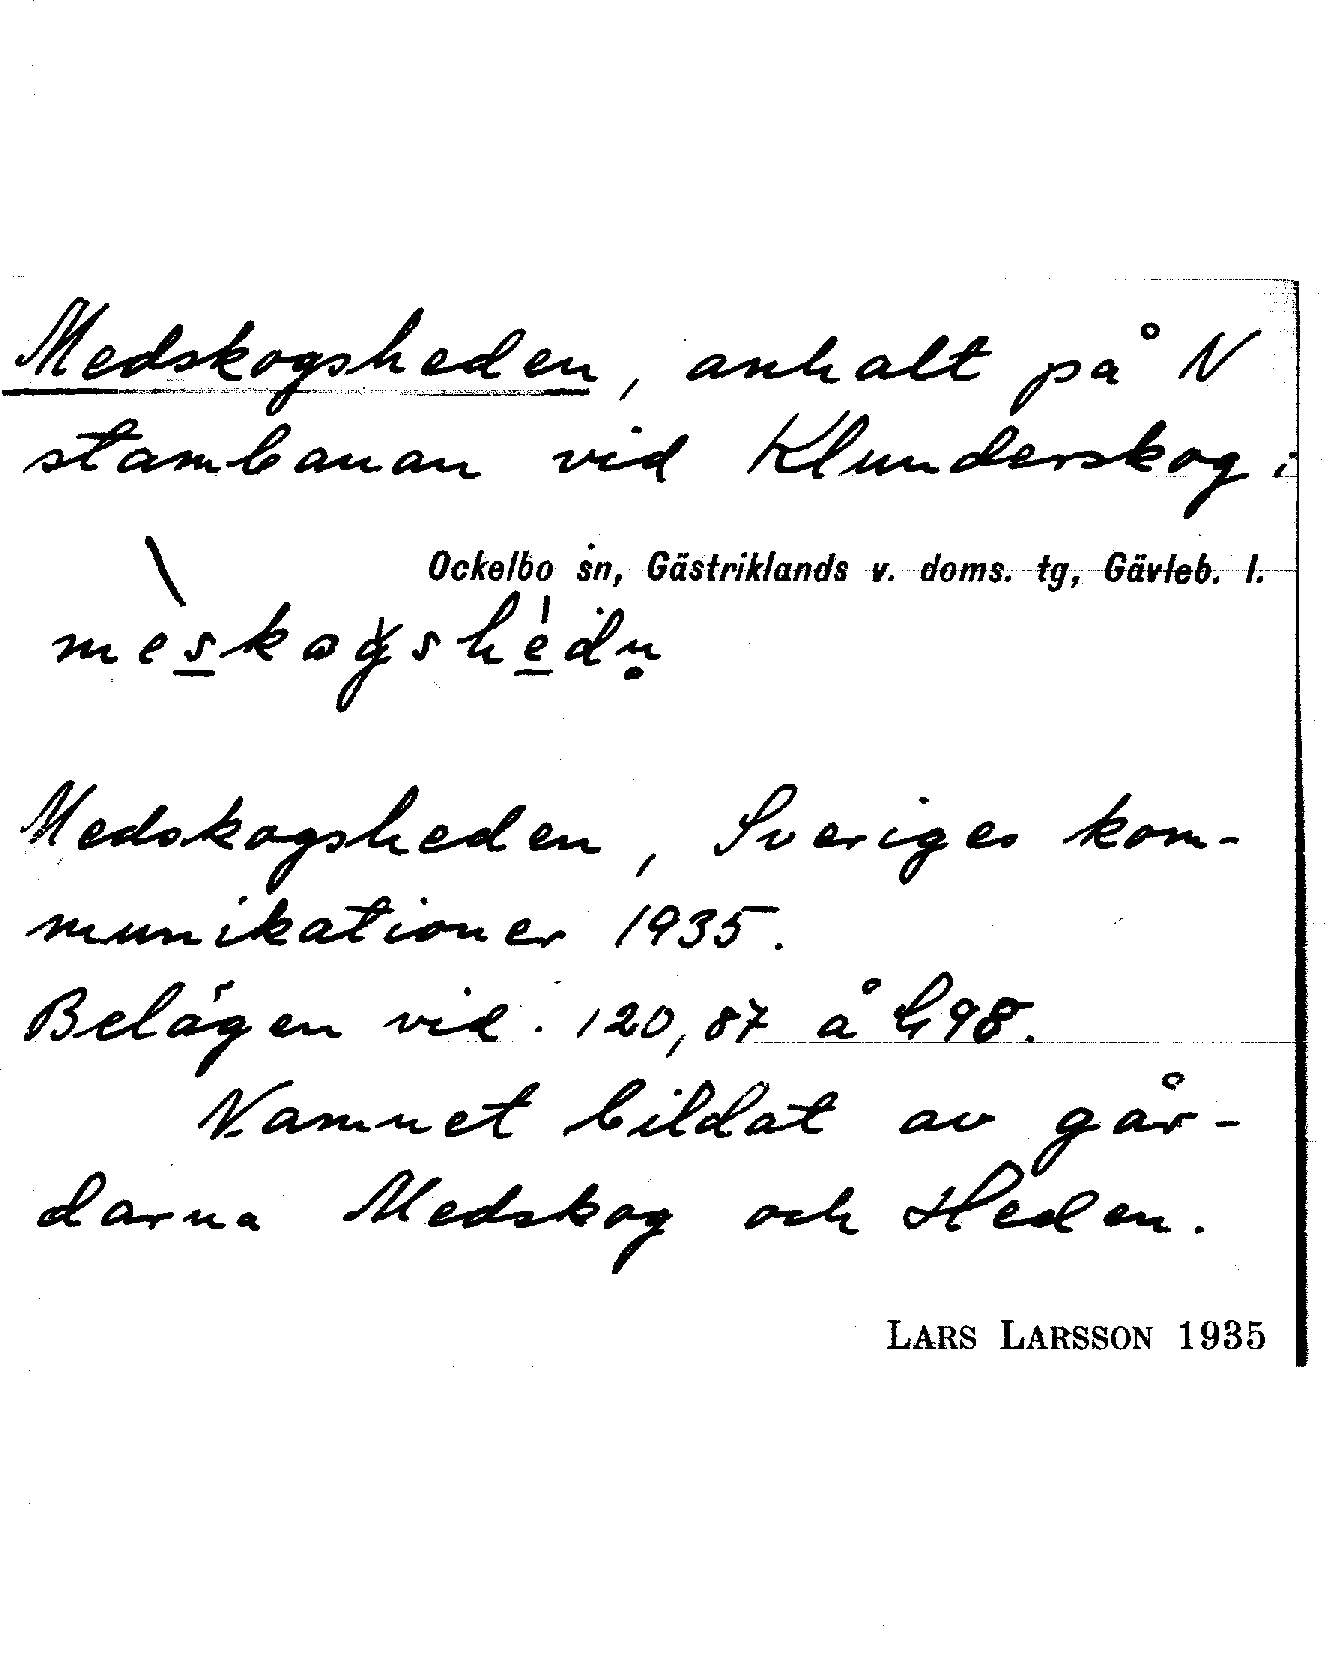 Medskogsheden, anhalt på N
stambanan vid Klunderskog i
Ockelbo sn, Gästriklands v. doms. tg, Gävleb. l.
Medskogsheden, Sveriges kom-
munikationer 1935.
Belägen vid 120,87 å G98.
Namnet bildat av går-
darna Medskog och Heden.
LARS LARSSON 1935